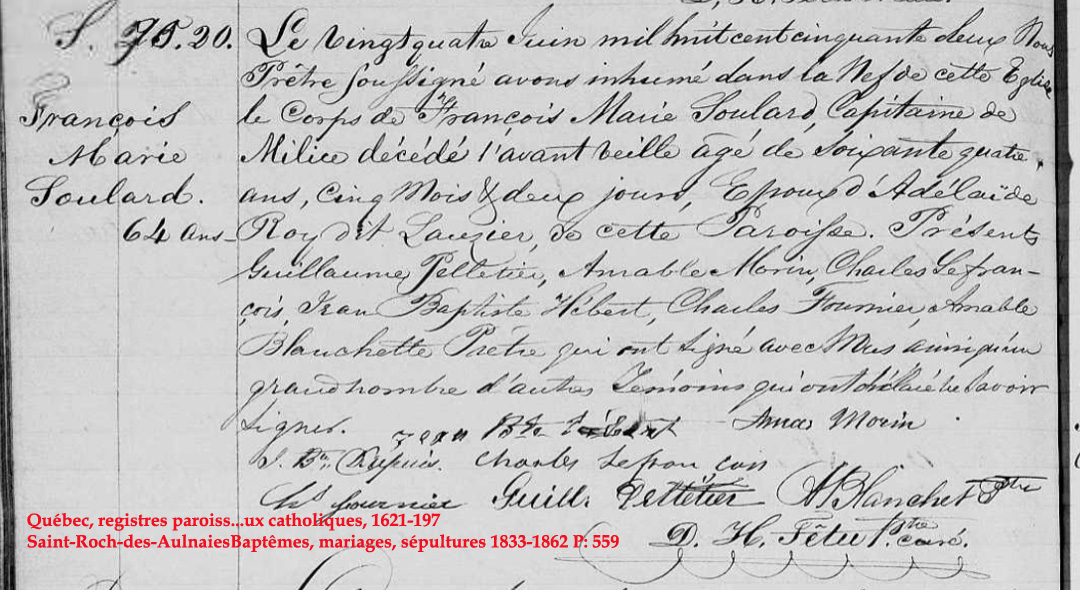 S. 75. 20.
François
Marie
Soulard.
64 ans
Le vingt quatre Juin mil huit cent cinquante deux Nous
Prêtre soussigné avons inhumé dans la Nef de cette Eglise
le Corps de Srt François Marie Soulard, Capitaine de
Milice décédé l'avant veille agé de soixante quatre
ans, cinq Mois & deux jours, Epoux d'Adélaïde
Roy dit Lauzier, de cette Paroisse. Présents
Guillaume Pelletier, Amable Morin, Charles Lefran-
çois, Jean Baptiste Hébert, Charles Fournier, Amable
Blanchette Prêtre qui ont signé avec Nous ainsi qu'un
grand nombre d'autres Témoins qui ont déclaré ne savoir
signer. Jean Bte Hébert Ama Morin
J. Bte Dupuis. Charles Lefran çois
Chs fournier Guill. Pelletier A Blanchet Ptre
D. H. Têtu Ptre curé.
Québec, registres paroiss...ux catholiques, 1621-197
Saint-Roch-des-AulnaiesBaptêmes, mariages, sépultures 1833-1862 P: 559